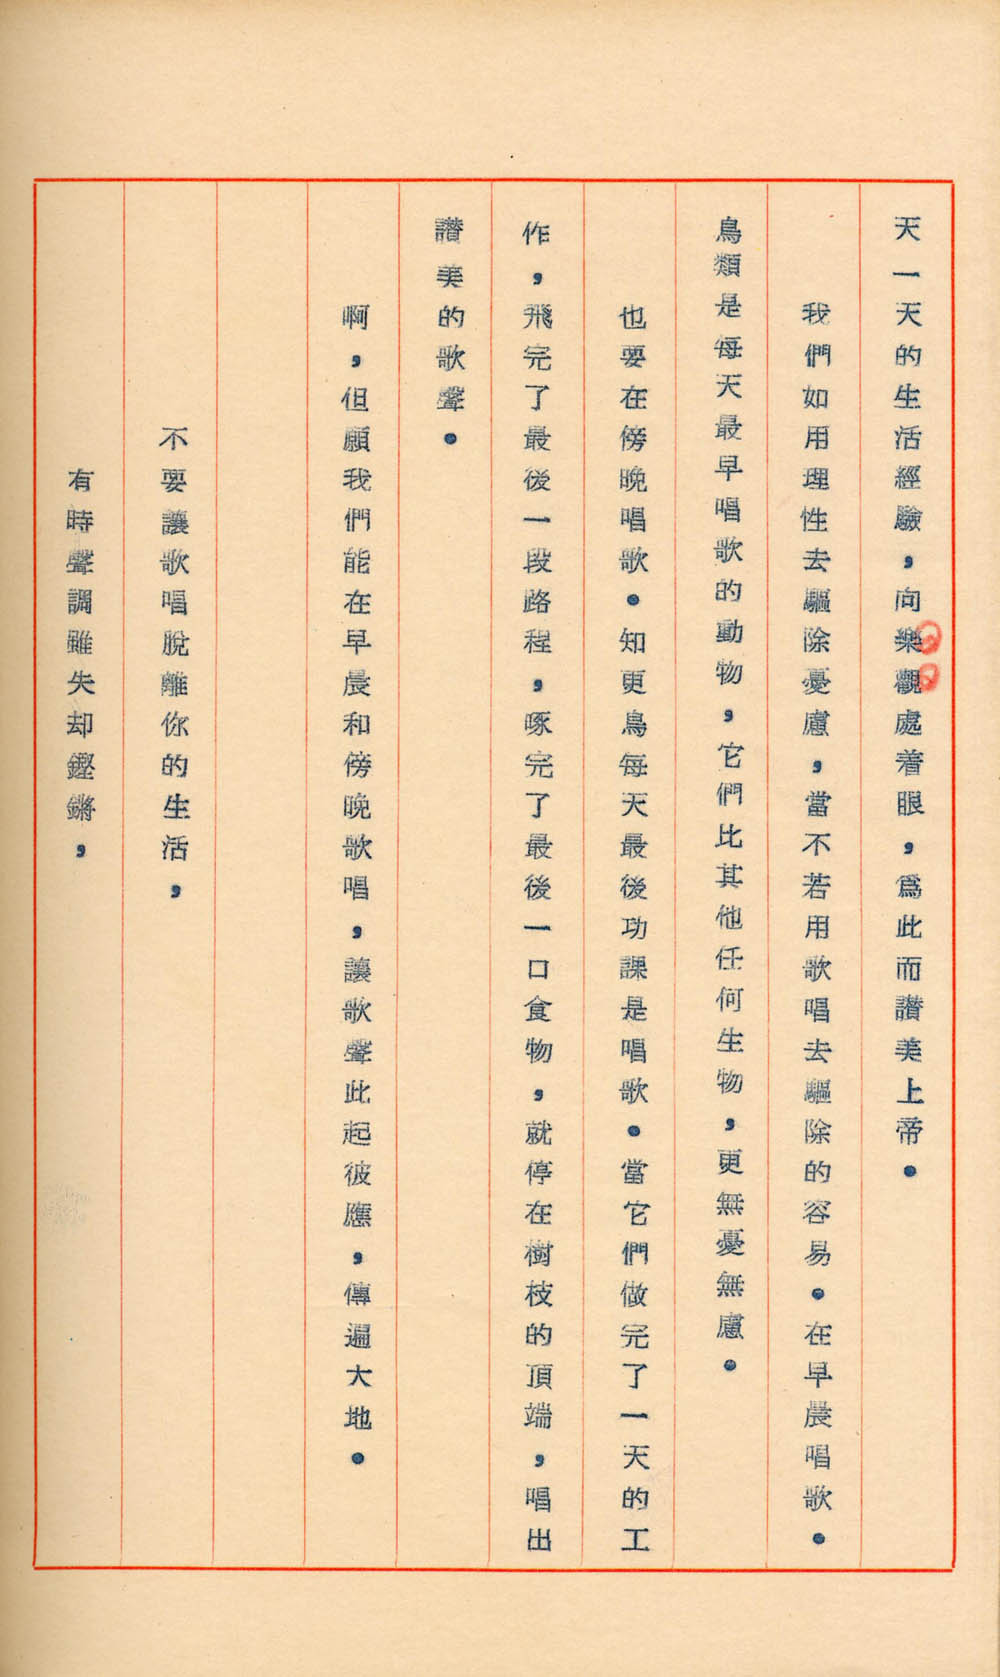 天一天的生活經驗，向樂觀處着眼，爲此而讚美上帝。
我們如用理性去驅除憂慮，當不若用歌唱去驅除的容易。在早晨唱歌。
鳥類是每天最早唱歌的動物，它們比其他任何生物，更無憂無慮。
也要在傍晚唱歌。知更鳥每天最後功課是唱歌。當它們做完了一天的工
作，飛完了最後一段路程，啄完了最後一口食物，就停在樹枝的頂端，唱出
讚美的歌聲。
啊，但願我們能在早晨和傍晚歌唱，讓歌聲此起彼應，傳遍大地。
不要讓歌唱脫離你的生活，
有時聲調雖失却鏗鏘，